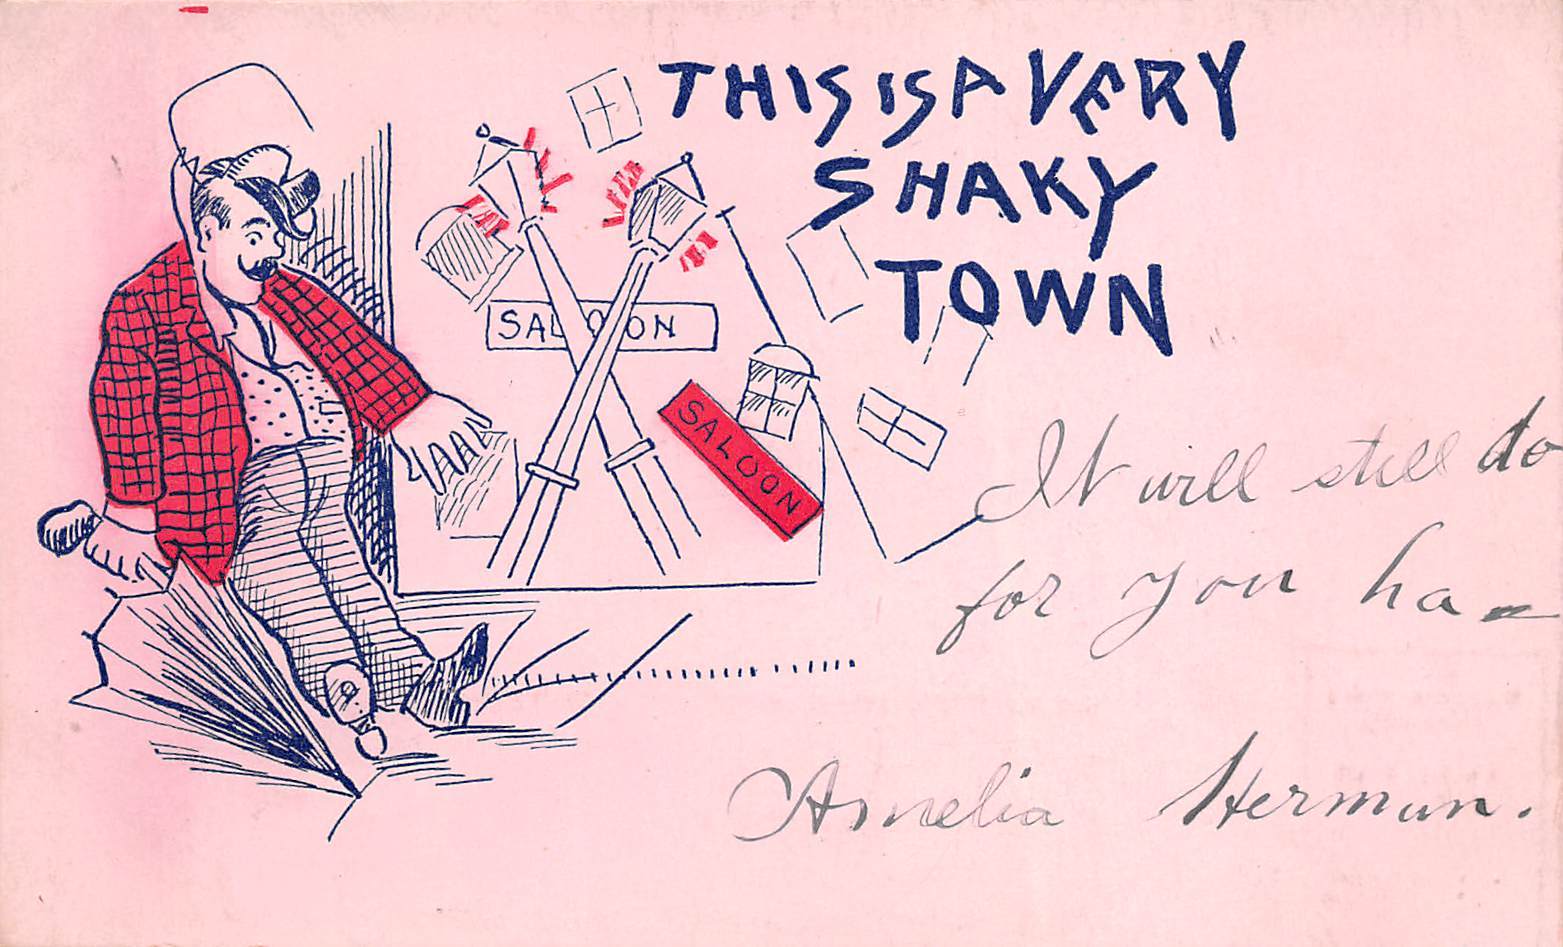 THIS IS A VERY
SHAKY
TOWN
SALOON
SALOON
It will still do
for you ha
Amelia Herman.